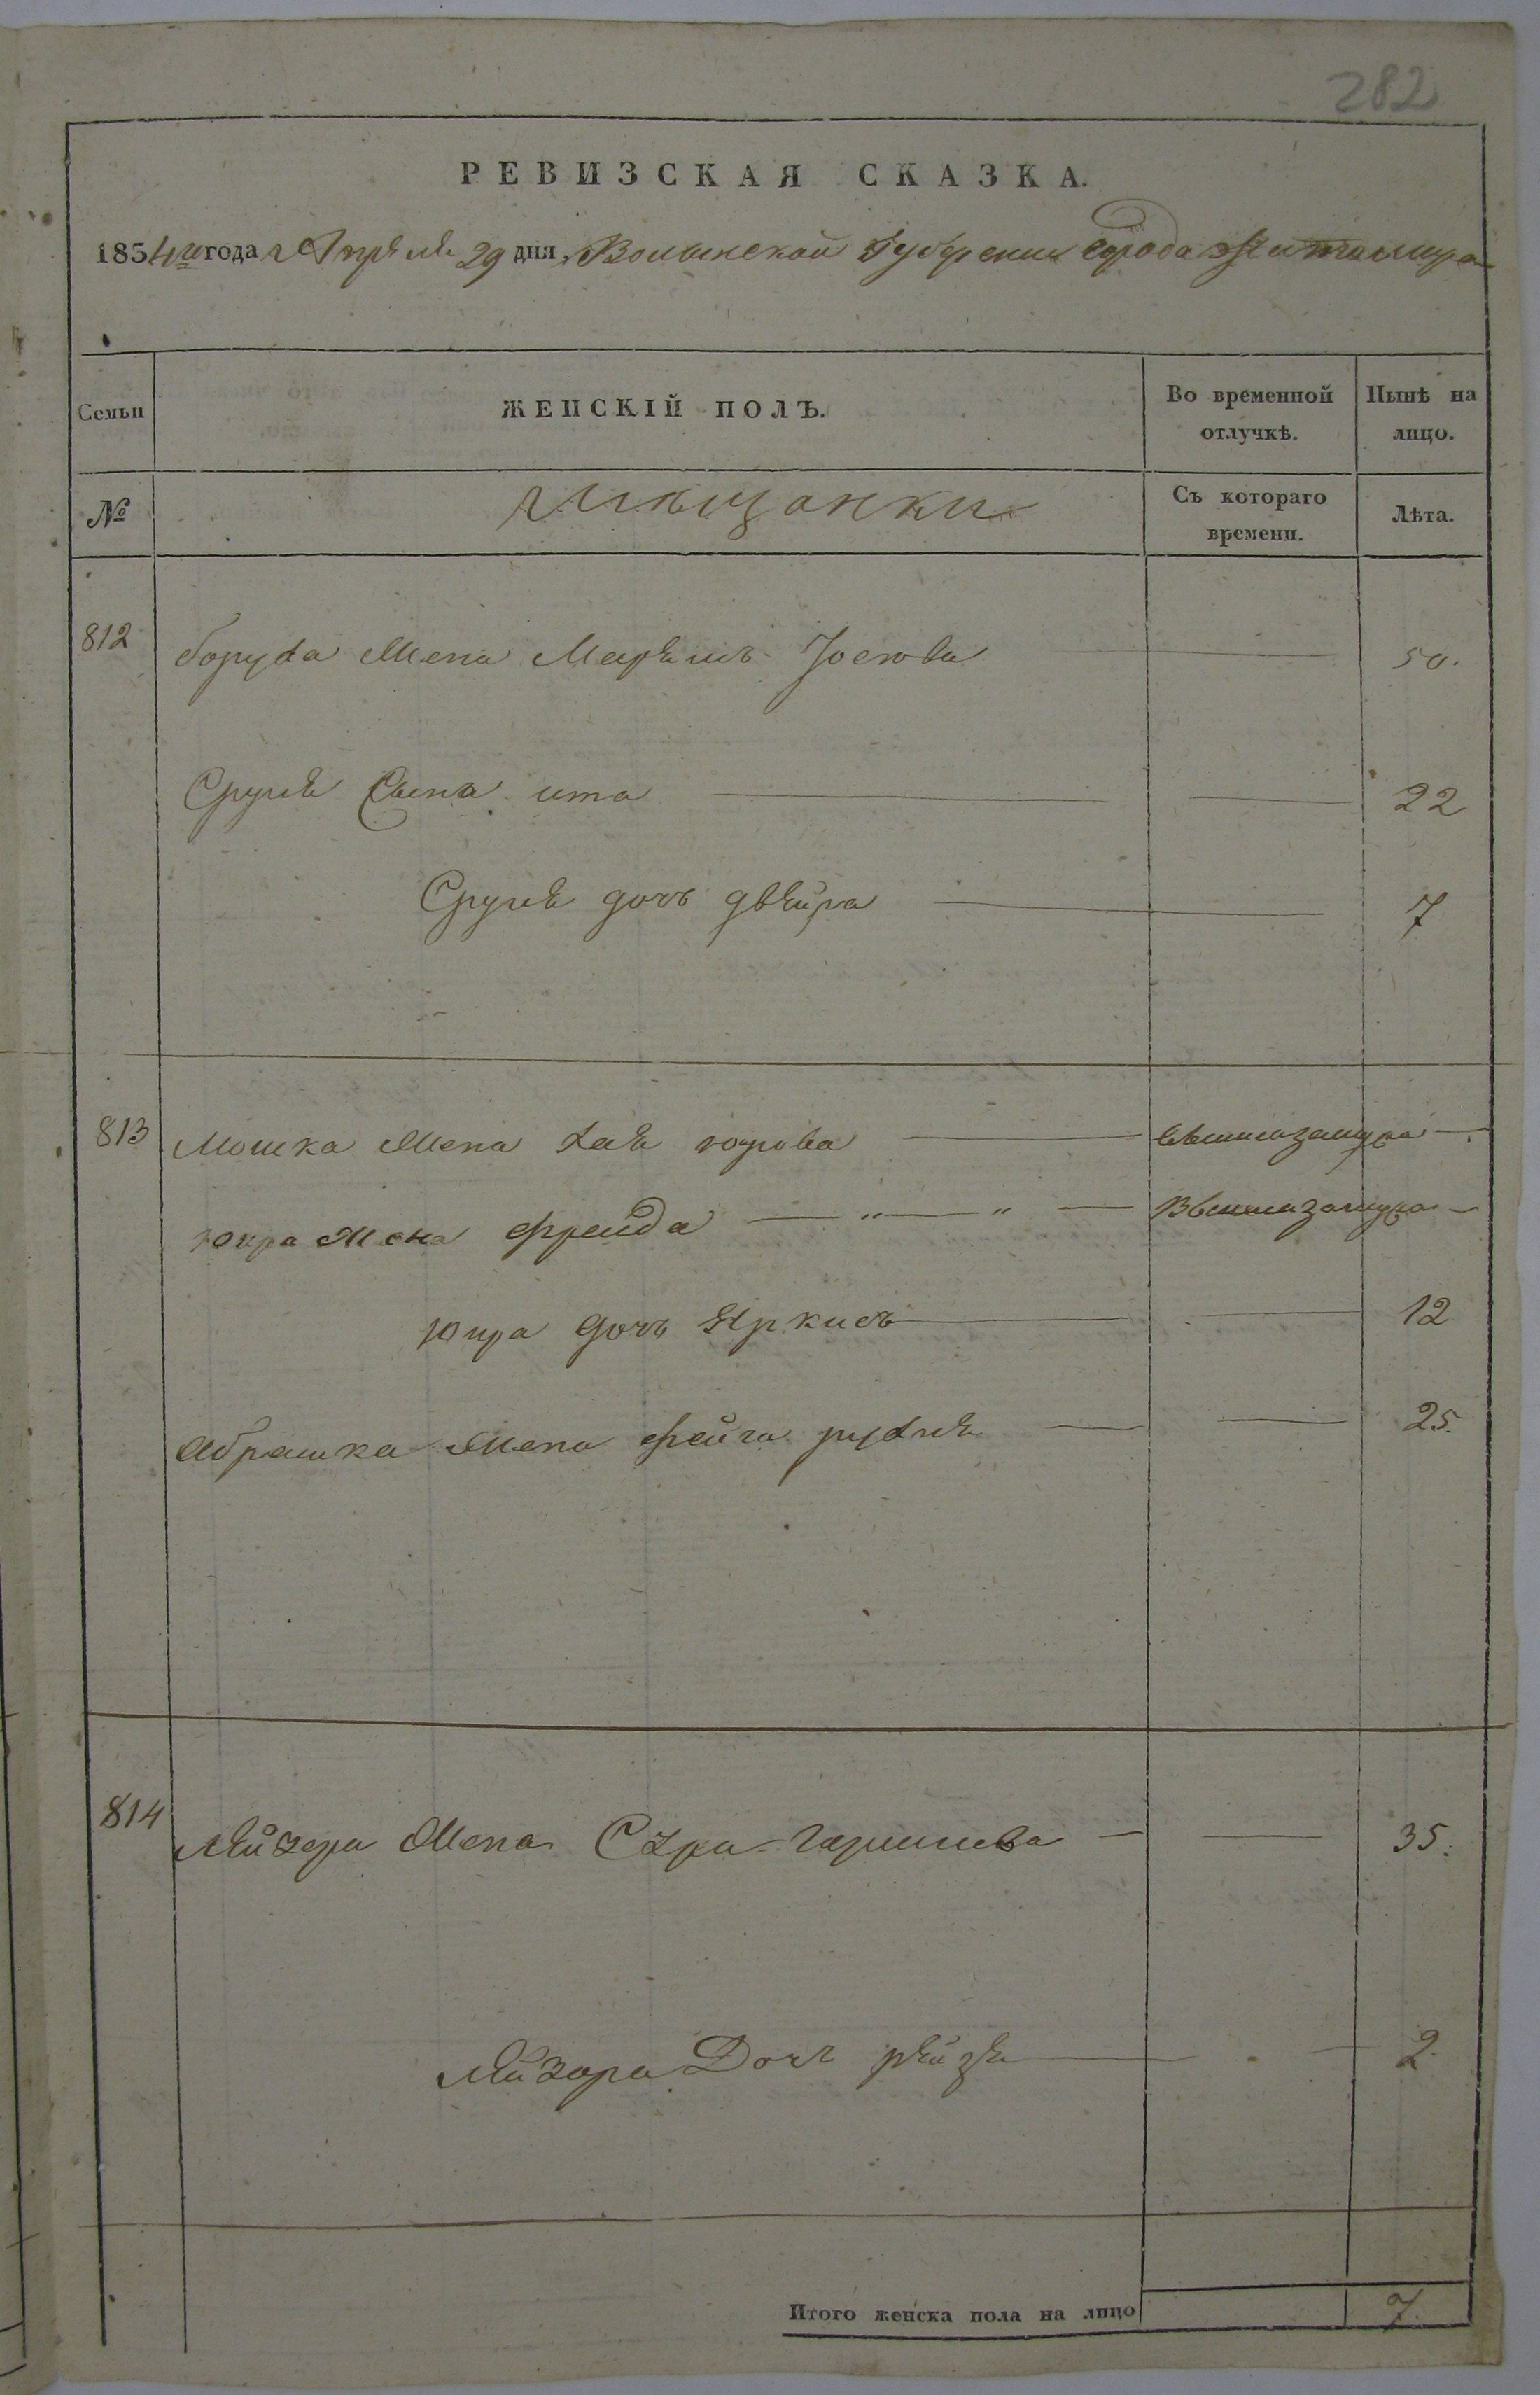 282
РЕВИЗСКАЯ СКАЗКА.
1854го года Апреля 29 дня Волынской Губернии города Житомира
Семьи
ЖЕНСКІЙ ПОЛЪ.
Во временной отлучкѣ.
Нынѣ на лицо.
№
мѣщанки
Съ котораго времени.
Лѣта.
812 Боруха Жена Марямъ Іосьова 50.
Сруля Сына ита 22
Сруля дочь двейра 7
813 Мошка Жена Хая вышла замужъ
Юкра Жена фрейда — " — " — Вышла замужъ
Юкра дочь Яркисъ 12
Абрашка Жена фейга рухля 25.
814 лейзера Жена Сура Гершкова 35.
лейзера Дочь рейзя 2
Итого женска пола на лицо 7.